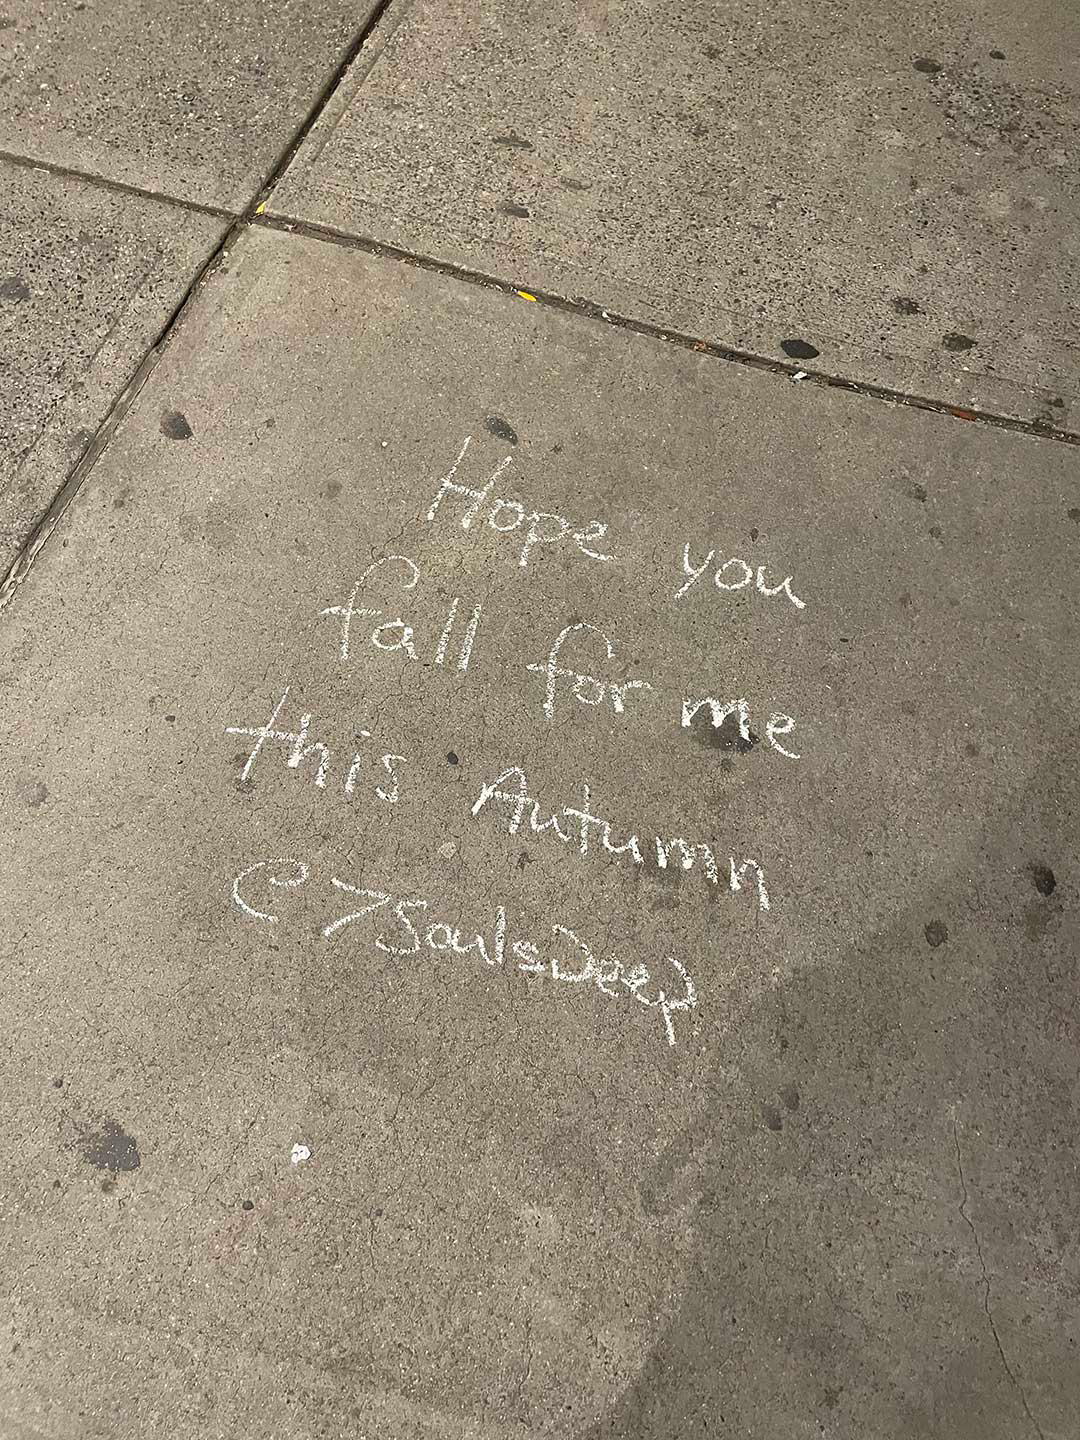 Hope you
fall for me
this Autumn
@7SoulsDeep